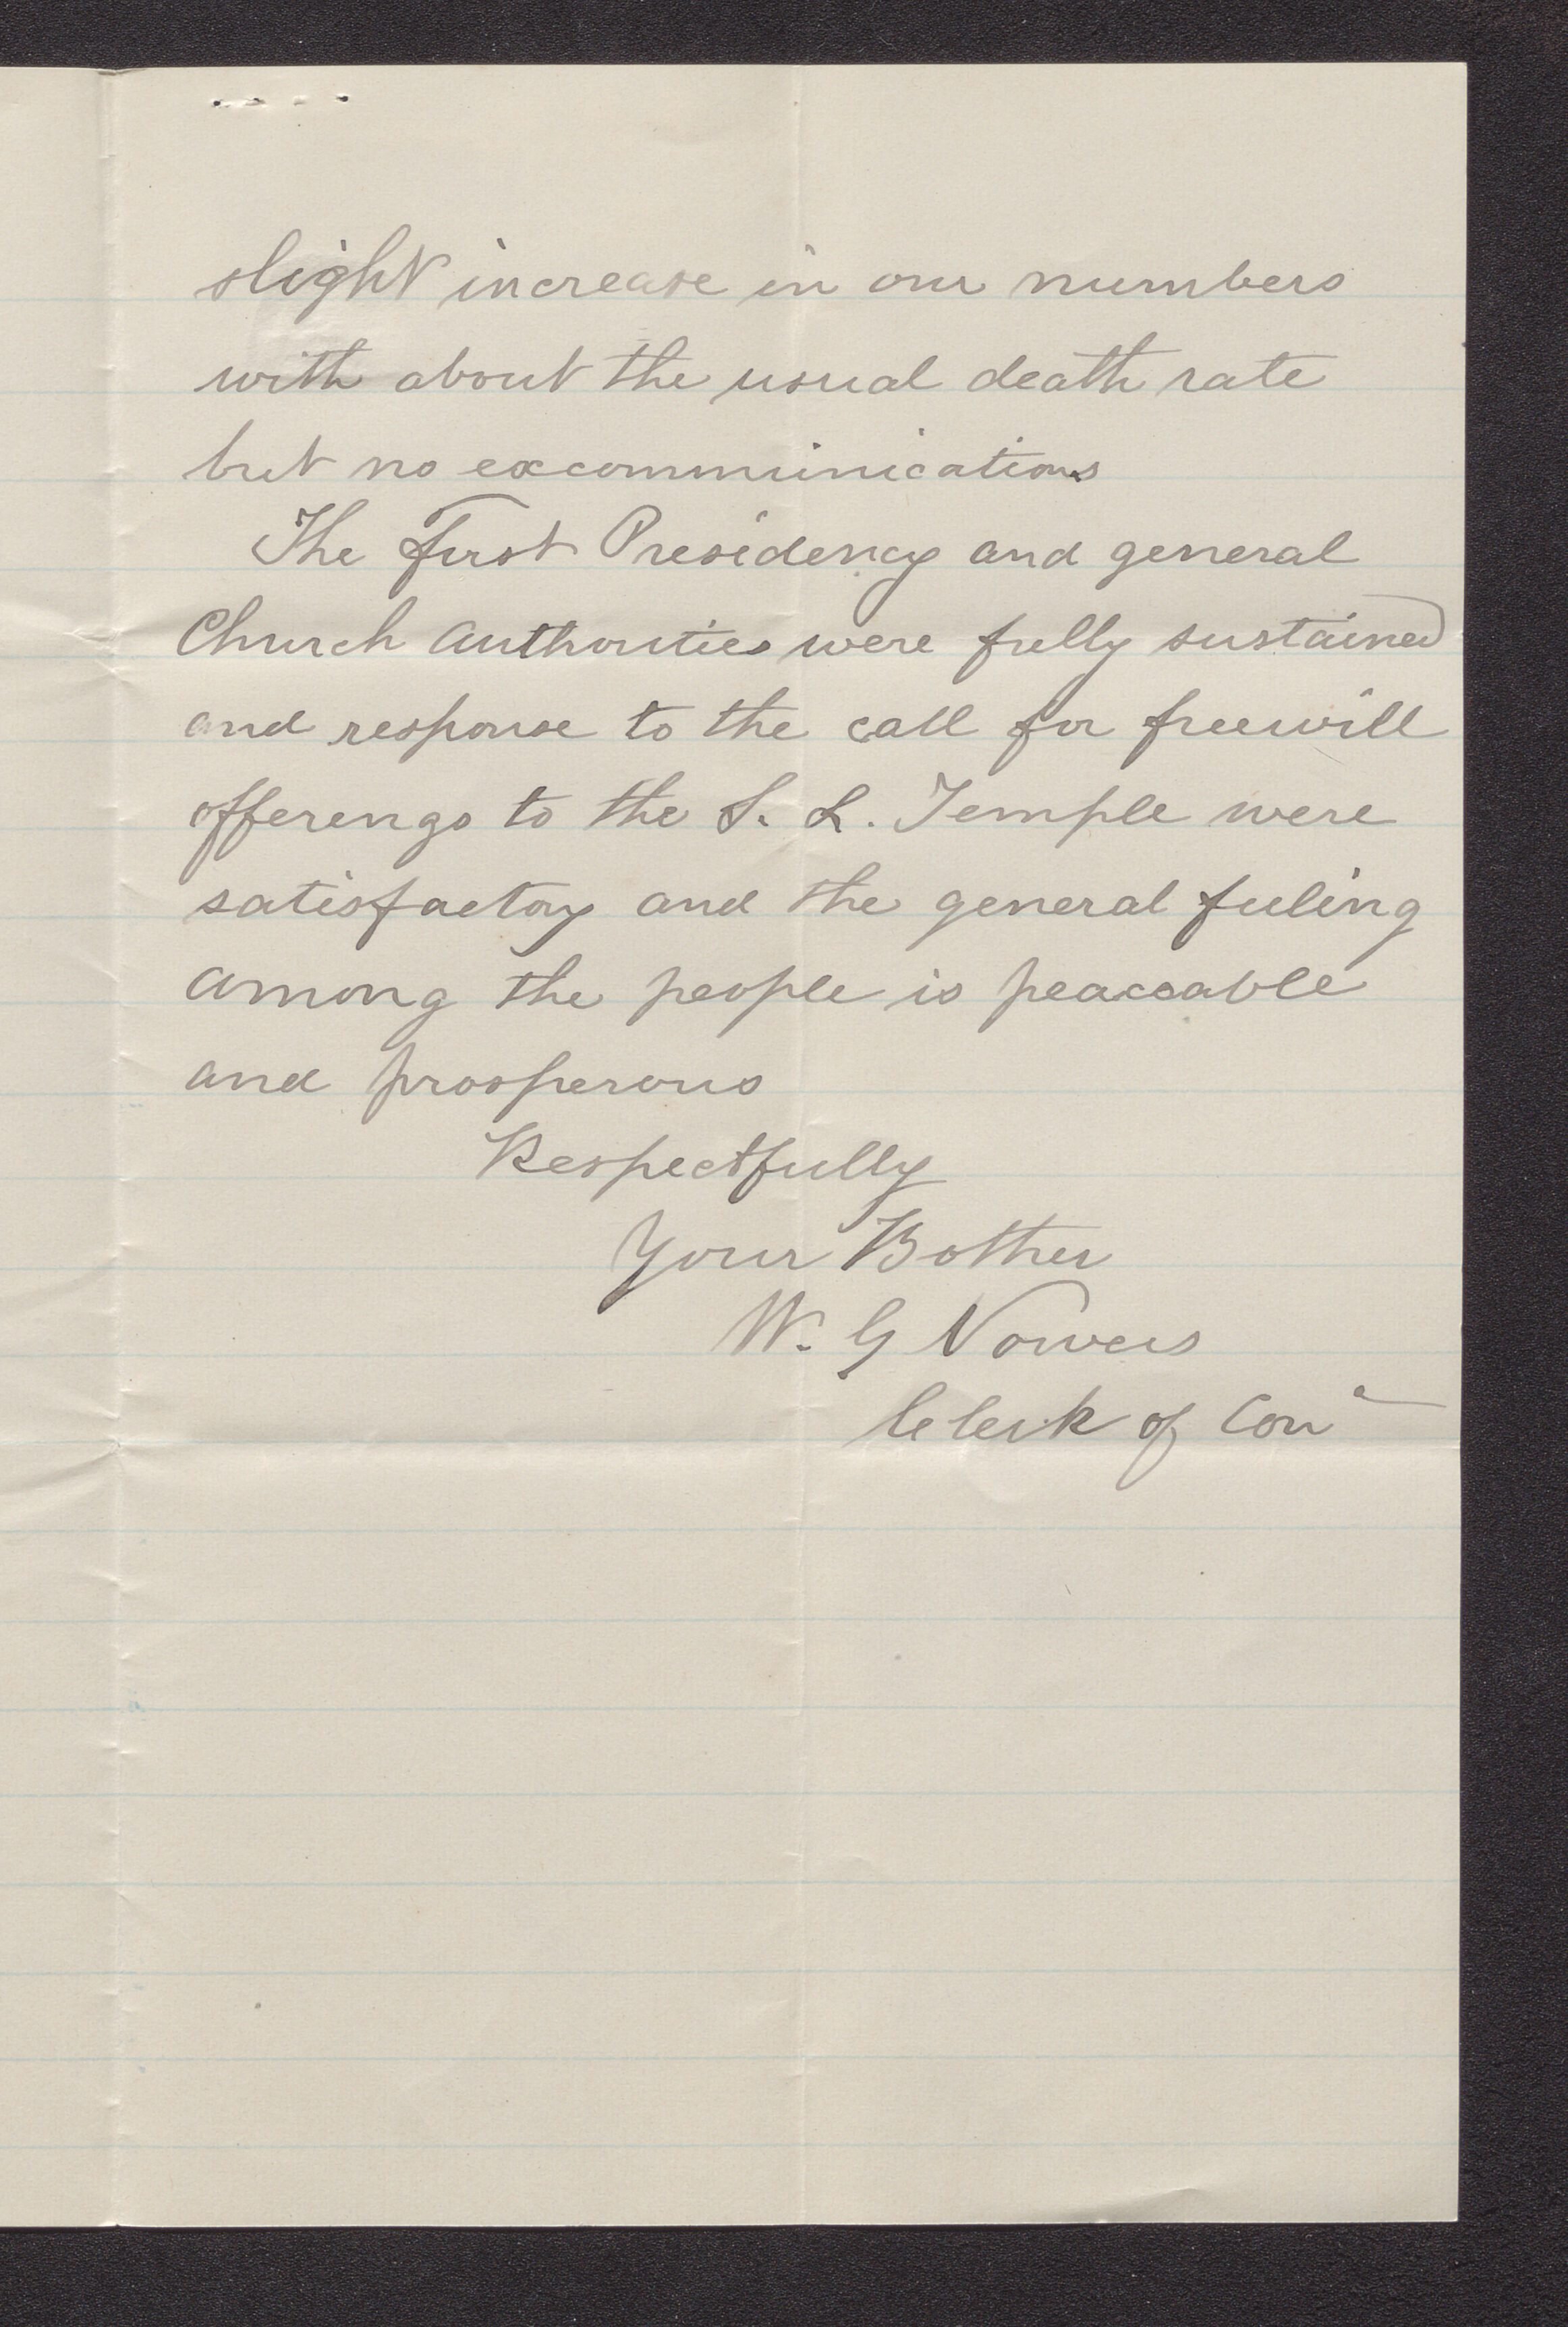 slight increase in our numbers
with about the usual death rate
but no excommunications
The First Presidency and general
Church Authorities were fully sustained
and response to the call for freewill
offerengs to the S. L. Temple were
satisfactory and the general feeling
among the people is peaceable
and prosperous
Respectfully
Your Bother
W. G Nowers
Clerk of Con